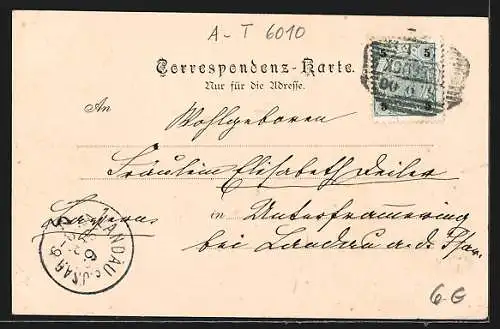 A-T 6010
Correspondenz-Karte.
Nur für die Adresse.
An
Wohlgeboren
Fräulein Elisabeth Weiler
Bayern in Unterframmering
bei Landau a. d. Isar
5 5
5 5
LANDAU a. ISAR
6-G